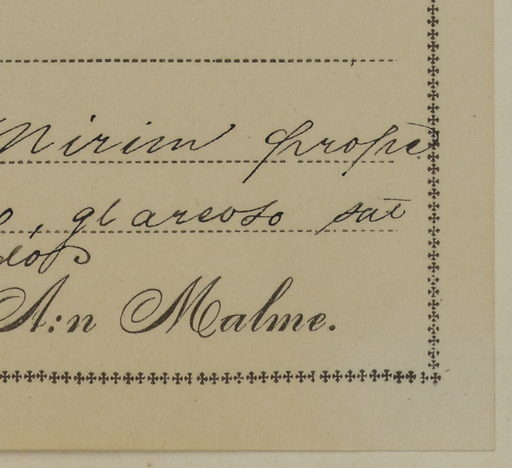 Mirim prope
, glareoso sat
A:n Malme.